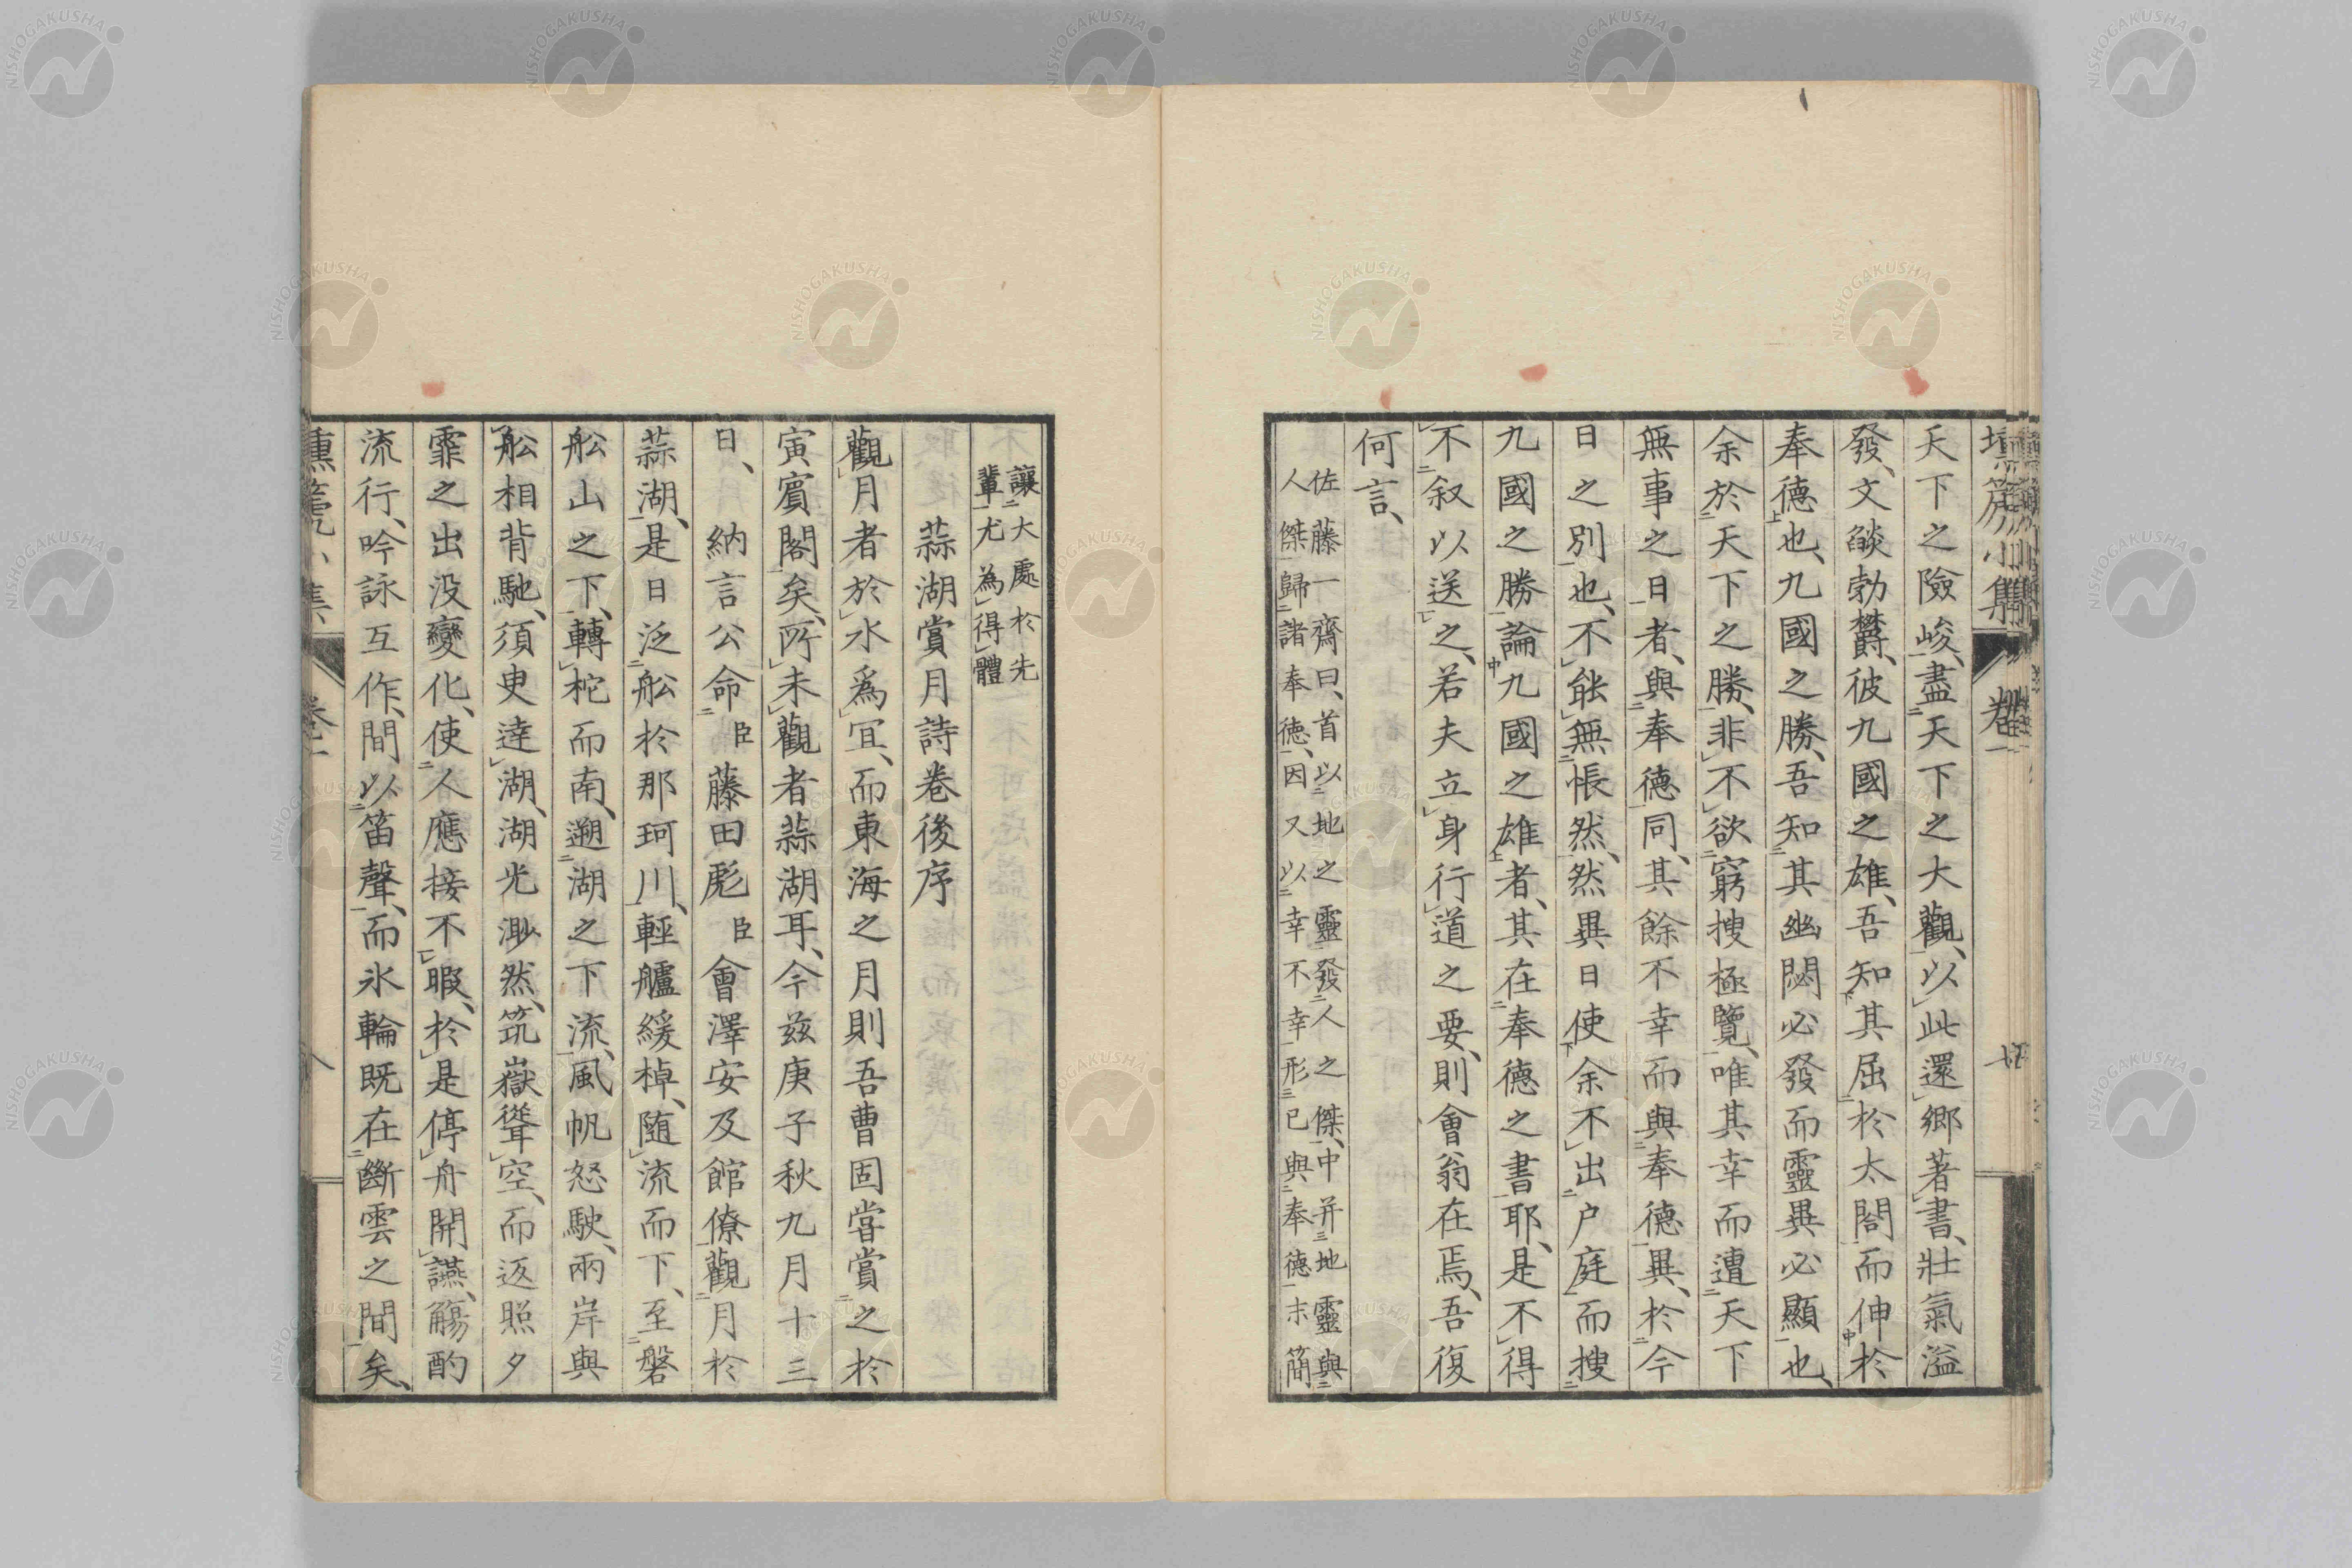 天下之險峻、盡天下之大觀、以此還鄉著書、壯氣溢
發、文燄勃欝、彼九國之雄、吾知其屈於太閤而伸於
奉德也、九國之勝、吾知其幽閟必發而靈異必顯也、
余於天下之勝、非不欲窮搜極覽、唯其幸而遭天下
無事之日者、與奉德同、其餘不幸而與奉德異、於今
日之別也、不能無悵然、然異日使余不出户庭而搜
九國之勝、論九國之雄者、其在奉德之書耶、是不得
不叙以送之、若夫立身行道之要、則會翁在焉、吾復
何言、
佐藤一齋曰、首以地之靈發人之傑、中并地靈與
人傑歸諸奉德、因又以幸不幸形已與奉德、末簡
讓大處於先
輩尤為得體
蒜湖賞月詩卷後序
觀月者於水爲宜、而東海之月則吾曹固甞賞之於
寅賓閣矣、所未觀者蒜湖耳、今茲庚子秋九月十三
日、納言公命臣藤田彪臣會澤安及館僚觀月於
蒜湖、是日泛舩於那珂川、輕艫緩棹、随流而下、至磐
舩山之下、轉柁而南、遡湖之下流、風帆怒駛、兩岸與
舩相背馳、須臾達湖、湖光渺然、筑嶽聳空、而返照夕
霏之出没變化、使人應接不暇、於是停舟開讌、觴酌
流行、吟詠互作、間以笛聲、而氷輪既在斷雲之間矣、
NISHOGAKUSHA